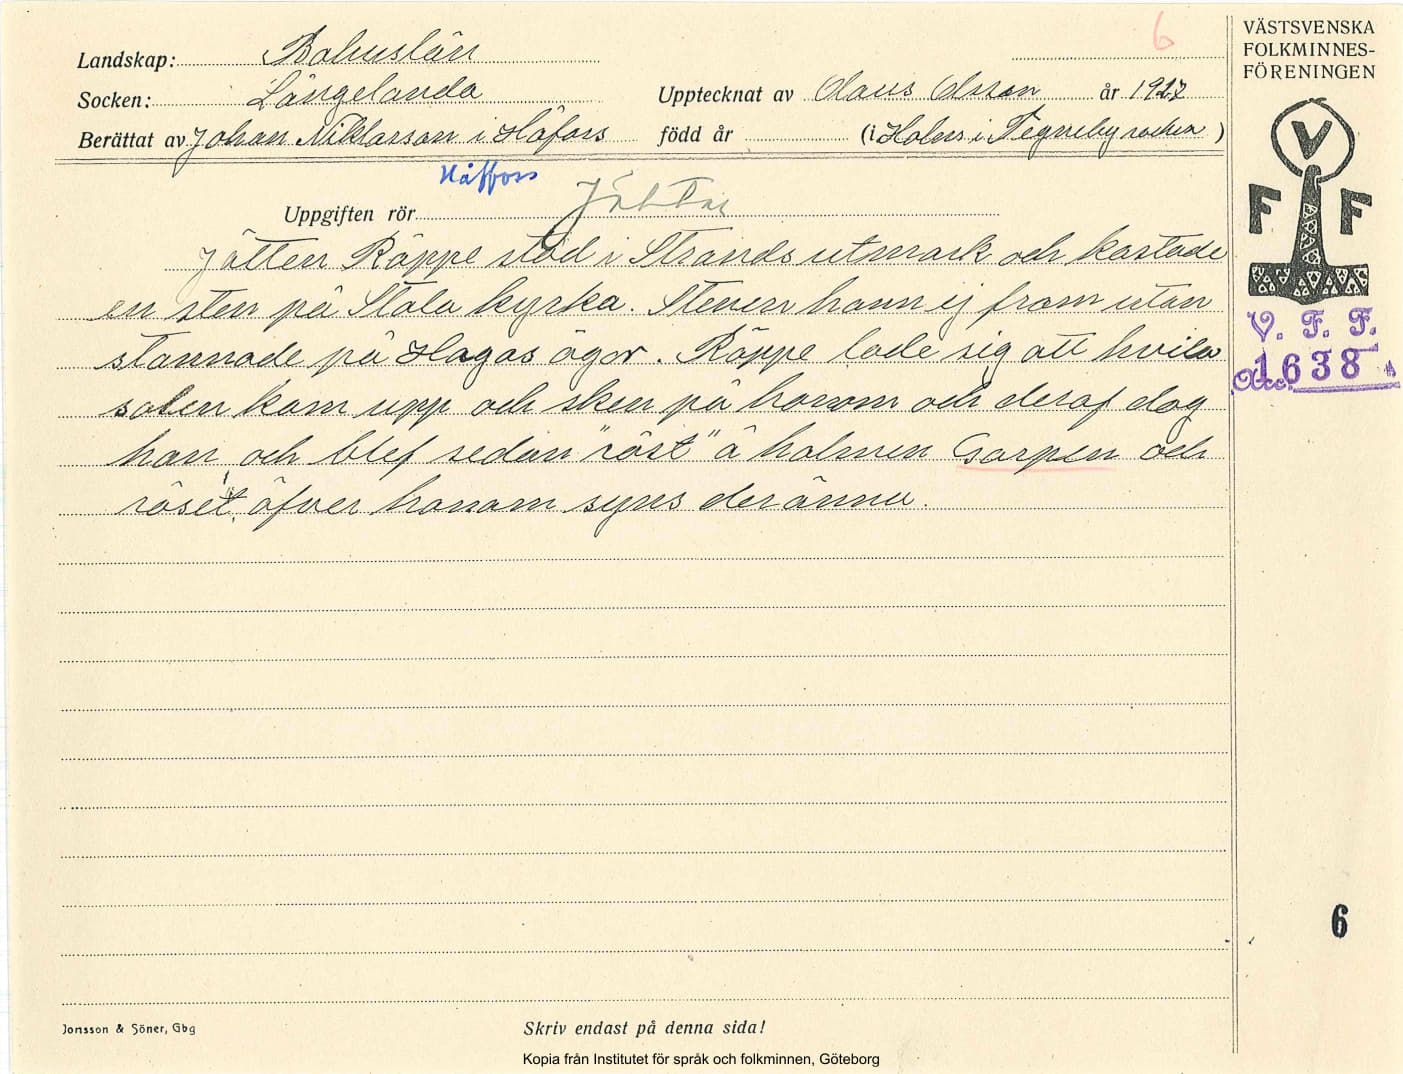 6
VÄSTSVENSKA
FOLKMINNES-
FÖRENINGEN
Landskap: Bohuslän
Socken: Långelanda
Upptecknat av Claus Olsson år 1927
Berättat av Johan Niklasson i Håfoss född år (i Holm i Tegneby socken)
Håffoss
Uppgiften rör Jättar
Jätten Räppe stod i Strands utmark och kastade
en sten på Stala kyrka. Stenen hann ej fram utan
stannade på Hagas ägor. Räppe lade sig att hvila
solen kom upp och sken på honom och deraf dog
han och blef sedan "röst" å holmen Garpen och
röset öfver honom syns der ännu.
V
F F
V. F. F.
Acc. 1638
6
Jonsson & Söner, Gbg
Skriv endast på denna sida!
Kopia från Institutet för språk och folkminnen, Göteborg